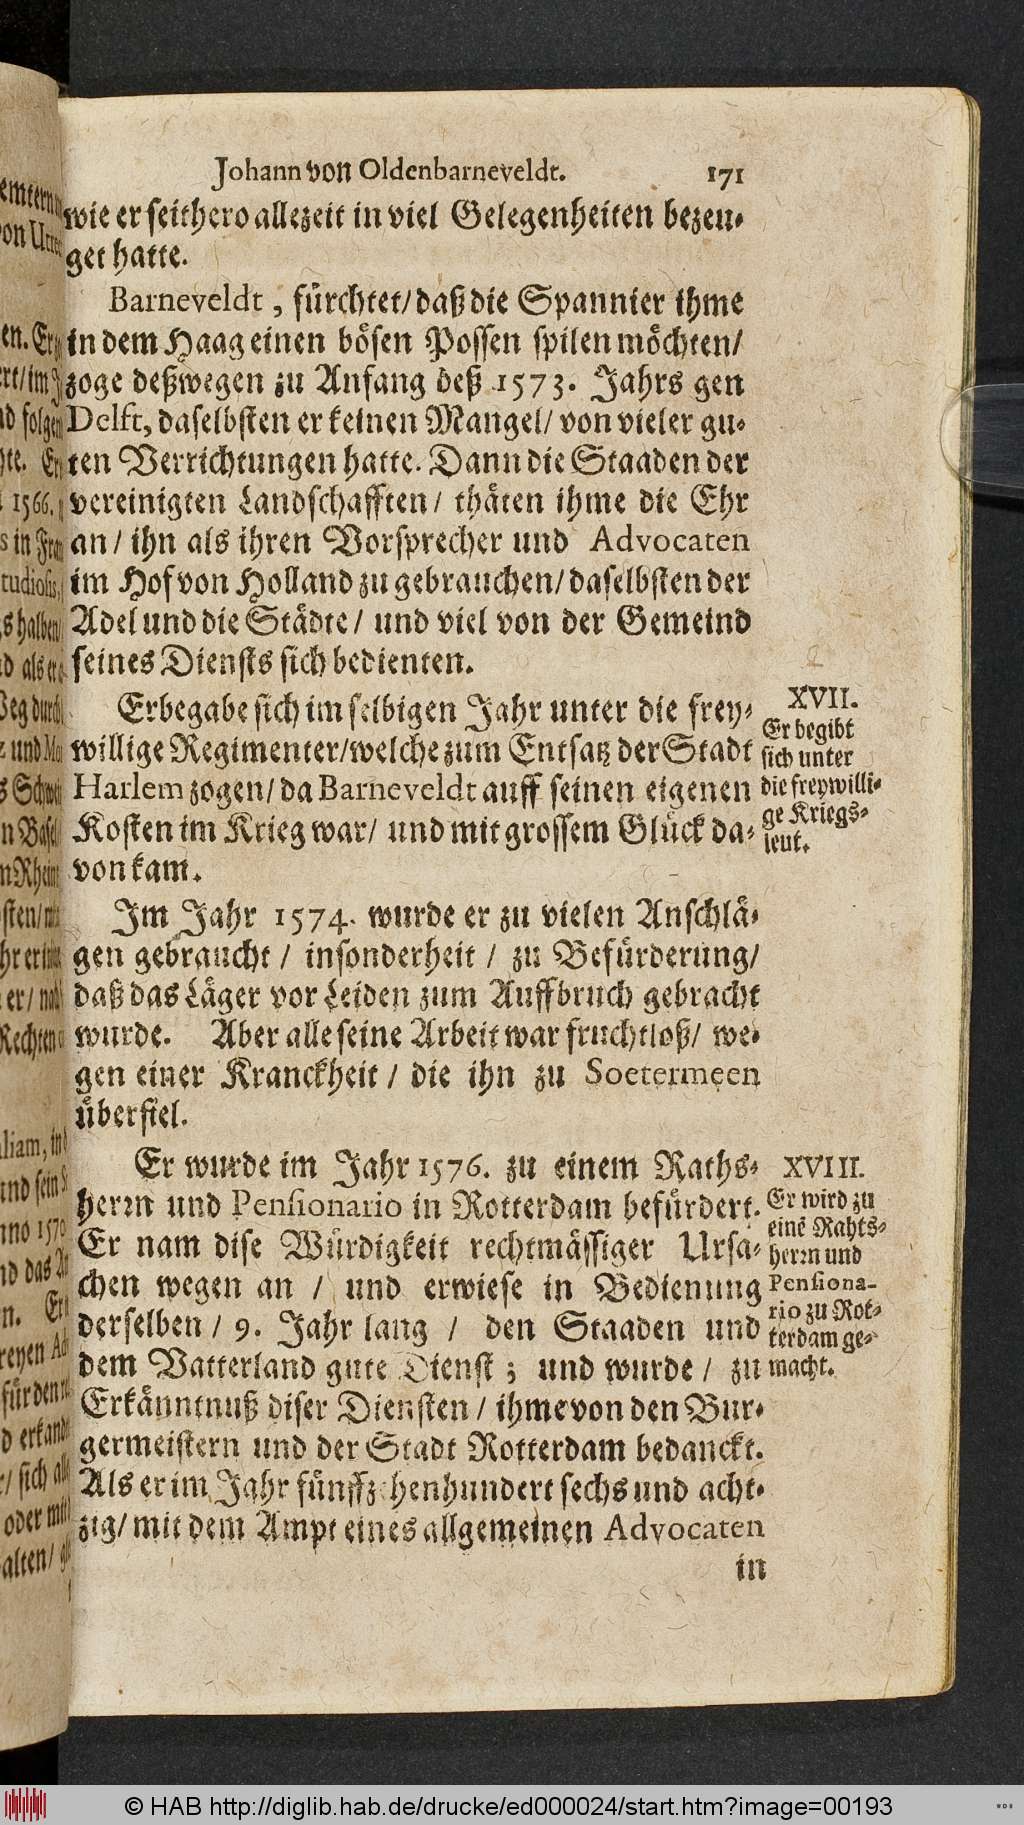 Johann von Oldenbarneveldt. 171
wie er seithero allezeit in viel Gelegenheiten bezeu-
get hatte.
Barneveldt, fürchtet/ daß die Spannier ihme
in dem Haag einen bösen Possen spilen möchten/
zoge deßwegen zu Anfang deß 1573. Jahrs gen
Delft, daselbsten er keinen Mangel/ von vieler gu-
ten Verrichtungen hatte. Dann die Staaden der
vereinigten Landschafften/ thäten ihme die Ehr
an/ ihn als ihren Vorsprecher und Advocaten
im Hof von Holland zu gebrauchen/ daselbsten der
Adel und die Städte/ und viel von der Gemeind
seines Diensts sich bedienten.
Er begabe sich im selbigen Jahr unter die frey-
willige Regimenter/ welche zum Entsatz der Stadt
Harlem zogen/ da Barneveldt auff seinen eigenen
Kosten im Krieg war/ und mit grossem Glück da-
von kam.
XVII.
Er begibt
sich unter
die freywilli-
ge Kriegs-
leut.
Im Jahr 1574. wurde er zu vielen Anschlä-
gen gebraucht/ insonderheit/ zu Befürderung/
daß das Läger vor Leiden zum Auffbruch gebracht
wurde. Aber alle seine Arbeit war fruchtloß/ we-
gen einer Kranckheit/ die ihn zu Soetermeen
überfiel.
Er wurde im Jahr 1576. zu einem Raths-
herrn und Pensionario in Rotterdam befürdert.
Er nam dise Würdigkeit rechtmässiger Ursa-
chen wegen an/ und erwiese in Bedienung
derselben/ 9. Jahr lang/ den Staaden und
dem Vatterland gute Dienst; und wurde/ zu
Erkänntnuß diser Diensten/ ihme von den Bur-
germeistern und der Stadt Rotterdam bedanckt.
Als er im Jahr fünffzehenhundert sechs und acht-
zig/ mit dem Ampt eines allgemeinen Advocaten
in
XVIII.
Er wird zu
einē Rahts-
herrn und
Pensiona-
rio zu Rot-
terdam ge-
macht.
© HAB http://diglib.hab.de/drucke/ed000024/start.htm?image=00193